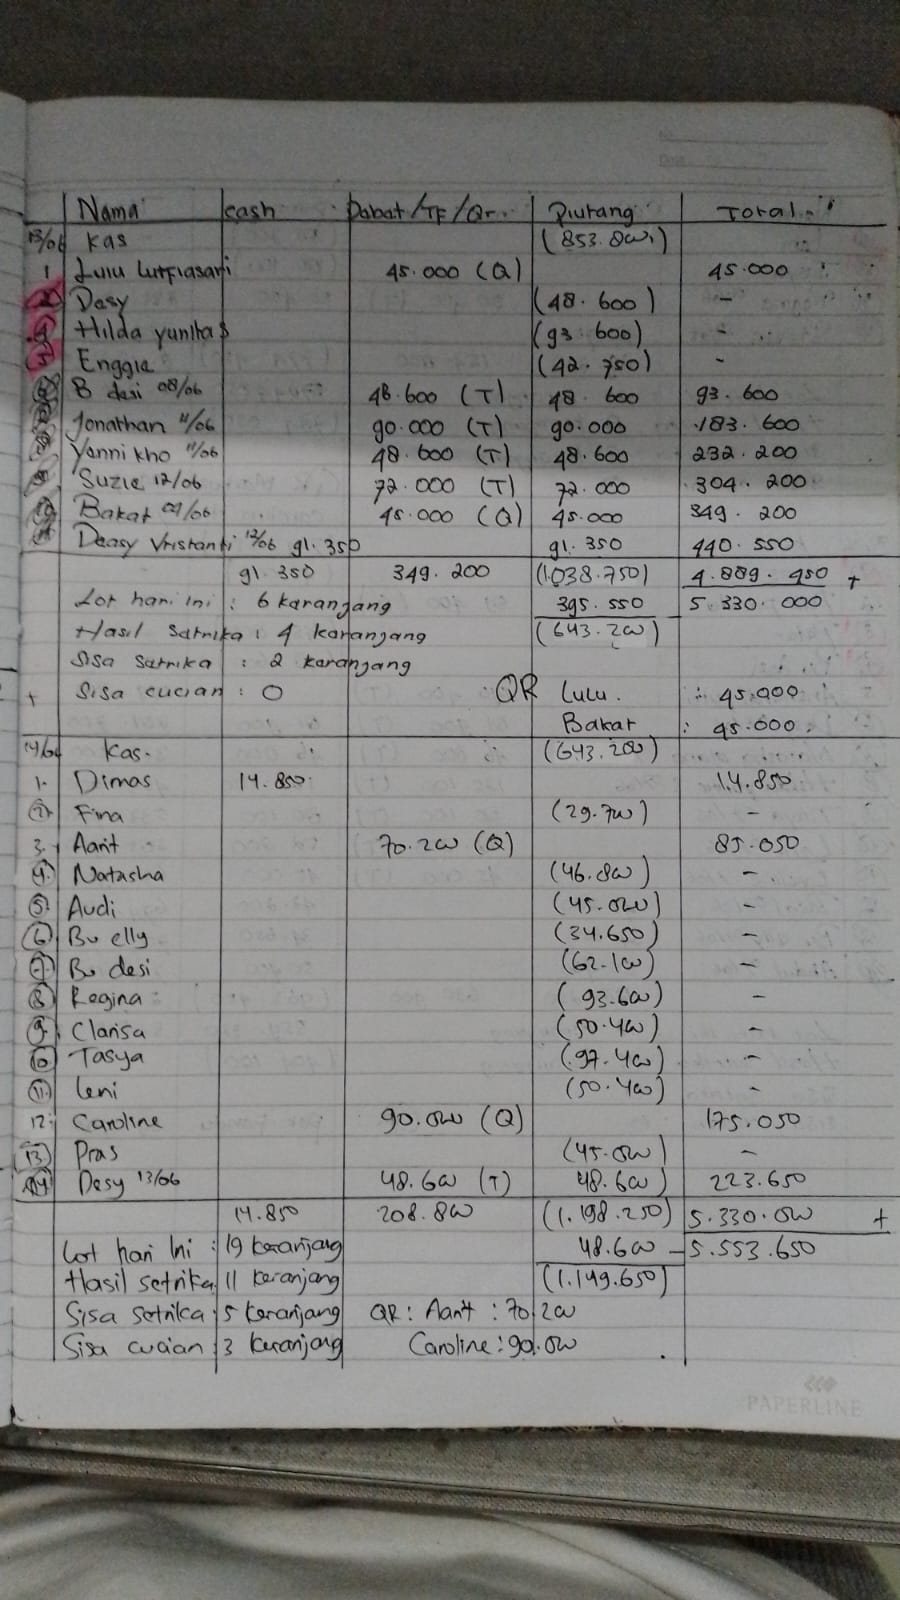 Nama cash Dabat/TF/Qr. Piutang Total
13/06 kas (853.800)
1 Lulu Lutfiasari 45.000 (Q) 45.000
Dasy (48.600) -
4 Hilda yunita s (93.600) -
5 Enggia (42.750) -
B desi 08/06 48.600 (T) 48.600 93.600
Jonathan 11/06 90.000 (T) 90.000 183.600
Yanni kho 11/06 48.600 (T) 48.600 232.200
Suzie 12/06 72.000 (T) 72.000 304.200
10 Bakat 09/06 45.000 (Q) 45.000 349.200
Deasy Vristanti 12/06 91.350 91.350 440.550
91.350 349.200 (1.038.750) 4.889.450 +
Lot hari ini : 6 karanjang 395.550 5.330.000
Hasil Satrika : 4 karanjang (643.200)
Sisa Satrika : 2 karanjang
+ Sisa cucian : 0 QR Lulu. : 45.000
Bakat : 45.000.
14/06 kas. (643.200)
1. Dimas 14.850 14.850
2 Fina (29.700) -
3. Aarit 70.200 (Q) 85.050
4. Natasha (46.800) -
5. Audi (45.000) -
6 Bu elly (34.650) -
7 Bu desi (62.100) -
8 Regina (93.600) -
9. Clarisa (50.400) -
10 Tasya (97.400) -
11. Leni (50.400) -
12. Caroline 90.000 (Q) 175.050
13. Pras (45.000) -
14 Desy 13/06 48.600 (T) 48.600) 223.650
14.850 208.800 (1.198.250) 5.330.000 +
Lot hari Ini : 19 keranjang 48.600 - 5.553.650
Hasil setrika 11 keranjang (1.149.650)
Sisa setrika : 5 keranjang QR : Aarit : 70.200
Sisa cucian : 3 keranjang Caroline : 90.000
PAPERLINE